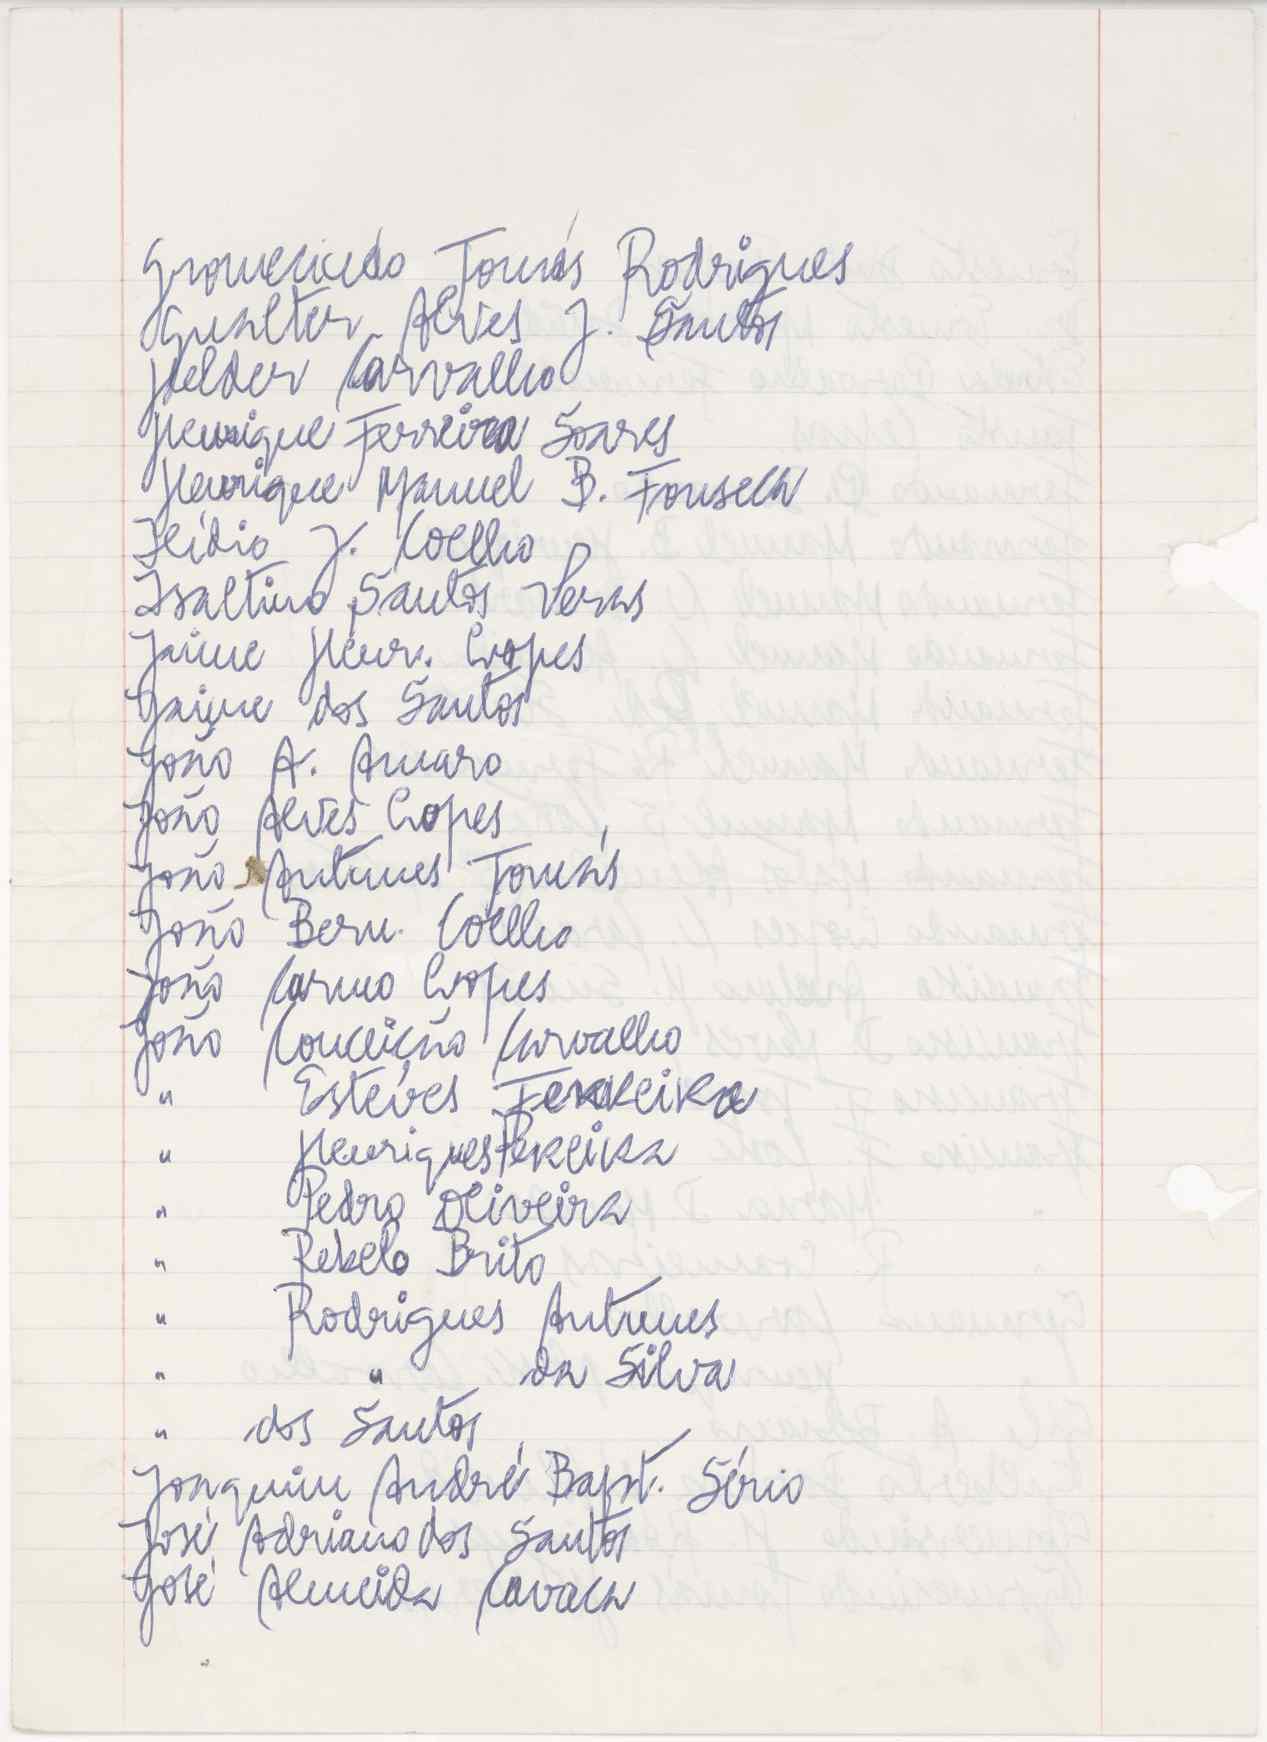 Gromecindo Tomás Rodrigues
Gualter Alves J. Santos
Helder Carvalho
Henrique Ferreira Soares
Henrique Manuel B. Fonseca
Ilídio J. Coelho
Isaltino Santos Veras
Jaime Henr. Lopes
Jaime dos Santos
João A. Amaro
João Alves Lopes
João Antunes Tomás
João Bern. Coelho
João Carmo Lopes
João Conceição Carvalho
" Estéves Ferreira
" Henriques Pereira
" Pedro Oliveira
" Rebelo Brito
" Rodrigues Antunes
" " da Silva
" dos Santos
Joaquim André Bapt. Sério
José Adriano dos Santos
José Almeida Cavaca